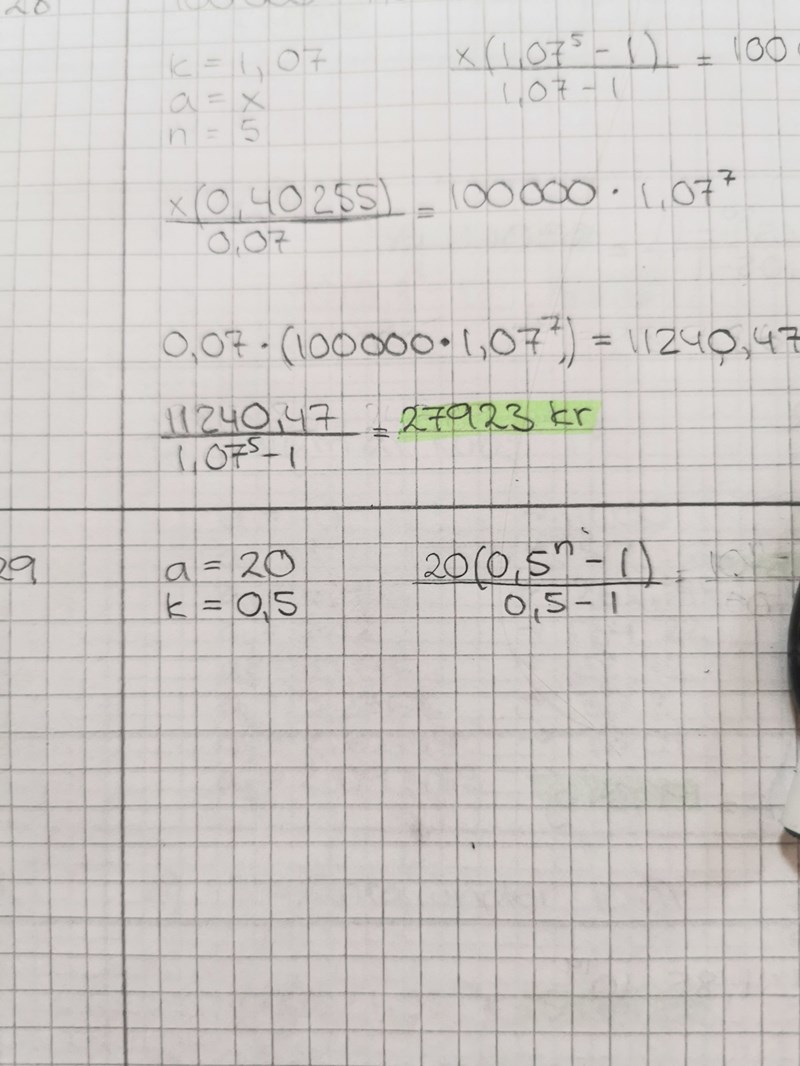 k = 1,07
a = x
n = 5
x(1,07⁵ - 1) / 1,07 - 1 = 100
x(0,40255) / 0,07 = 100000 · 1,07⁷
0,07 · (100000 · 1,07⁷) = 11240,47
11240,47 / 1,07⁵ - 1 = 27923 kr
29
a = 20
k = 0,5
20(0,5ⁿ - 1) / 0,5 - 1 =